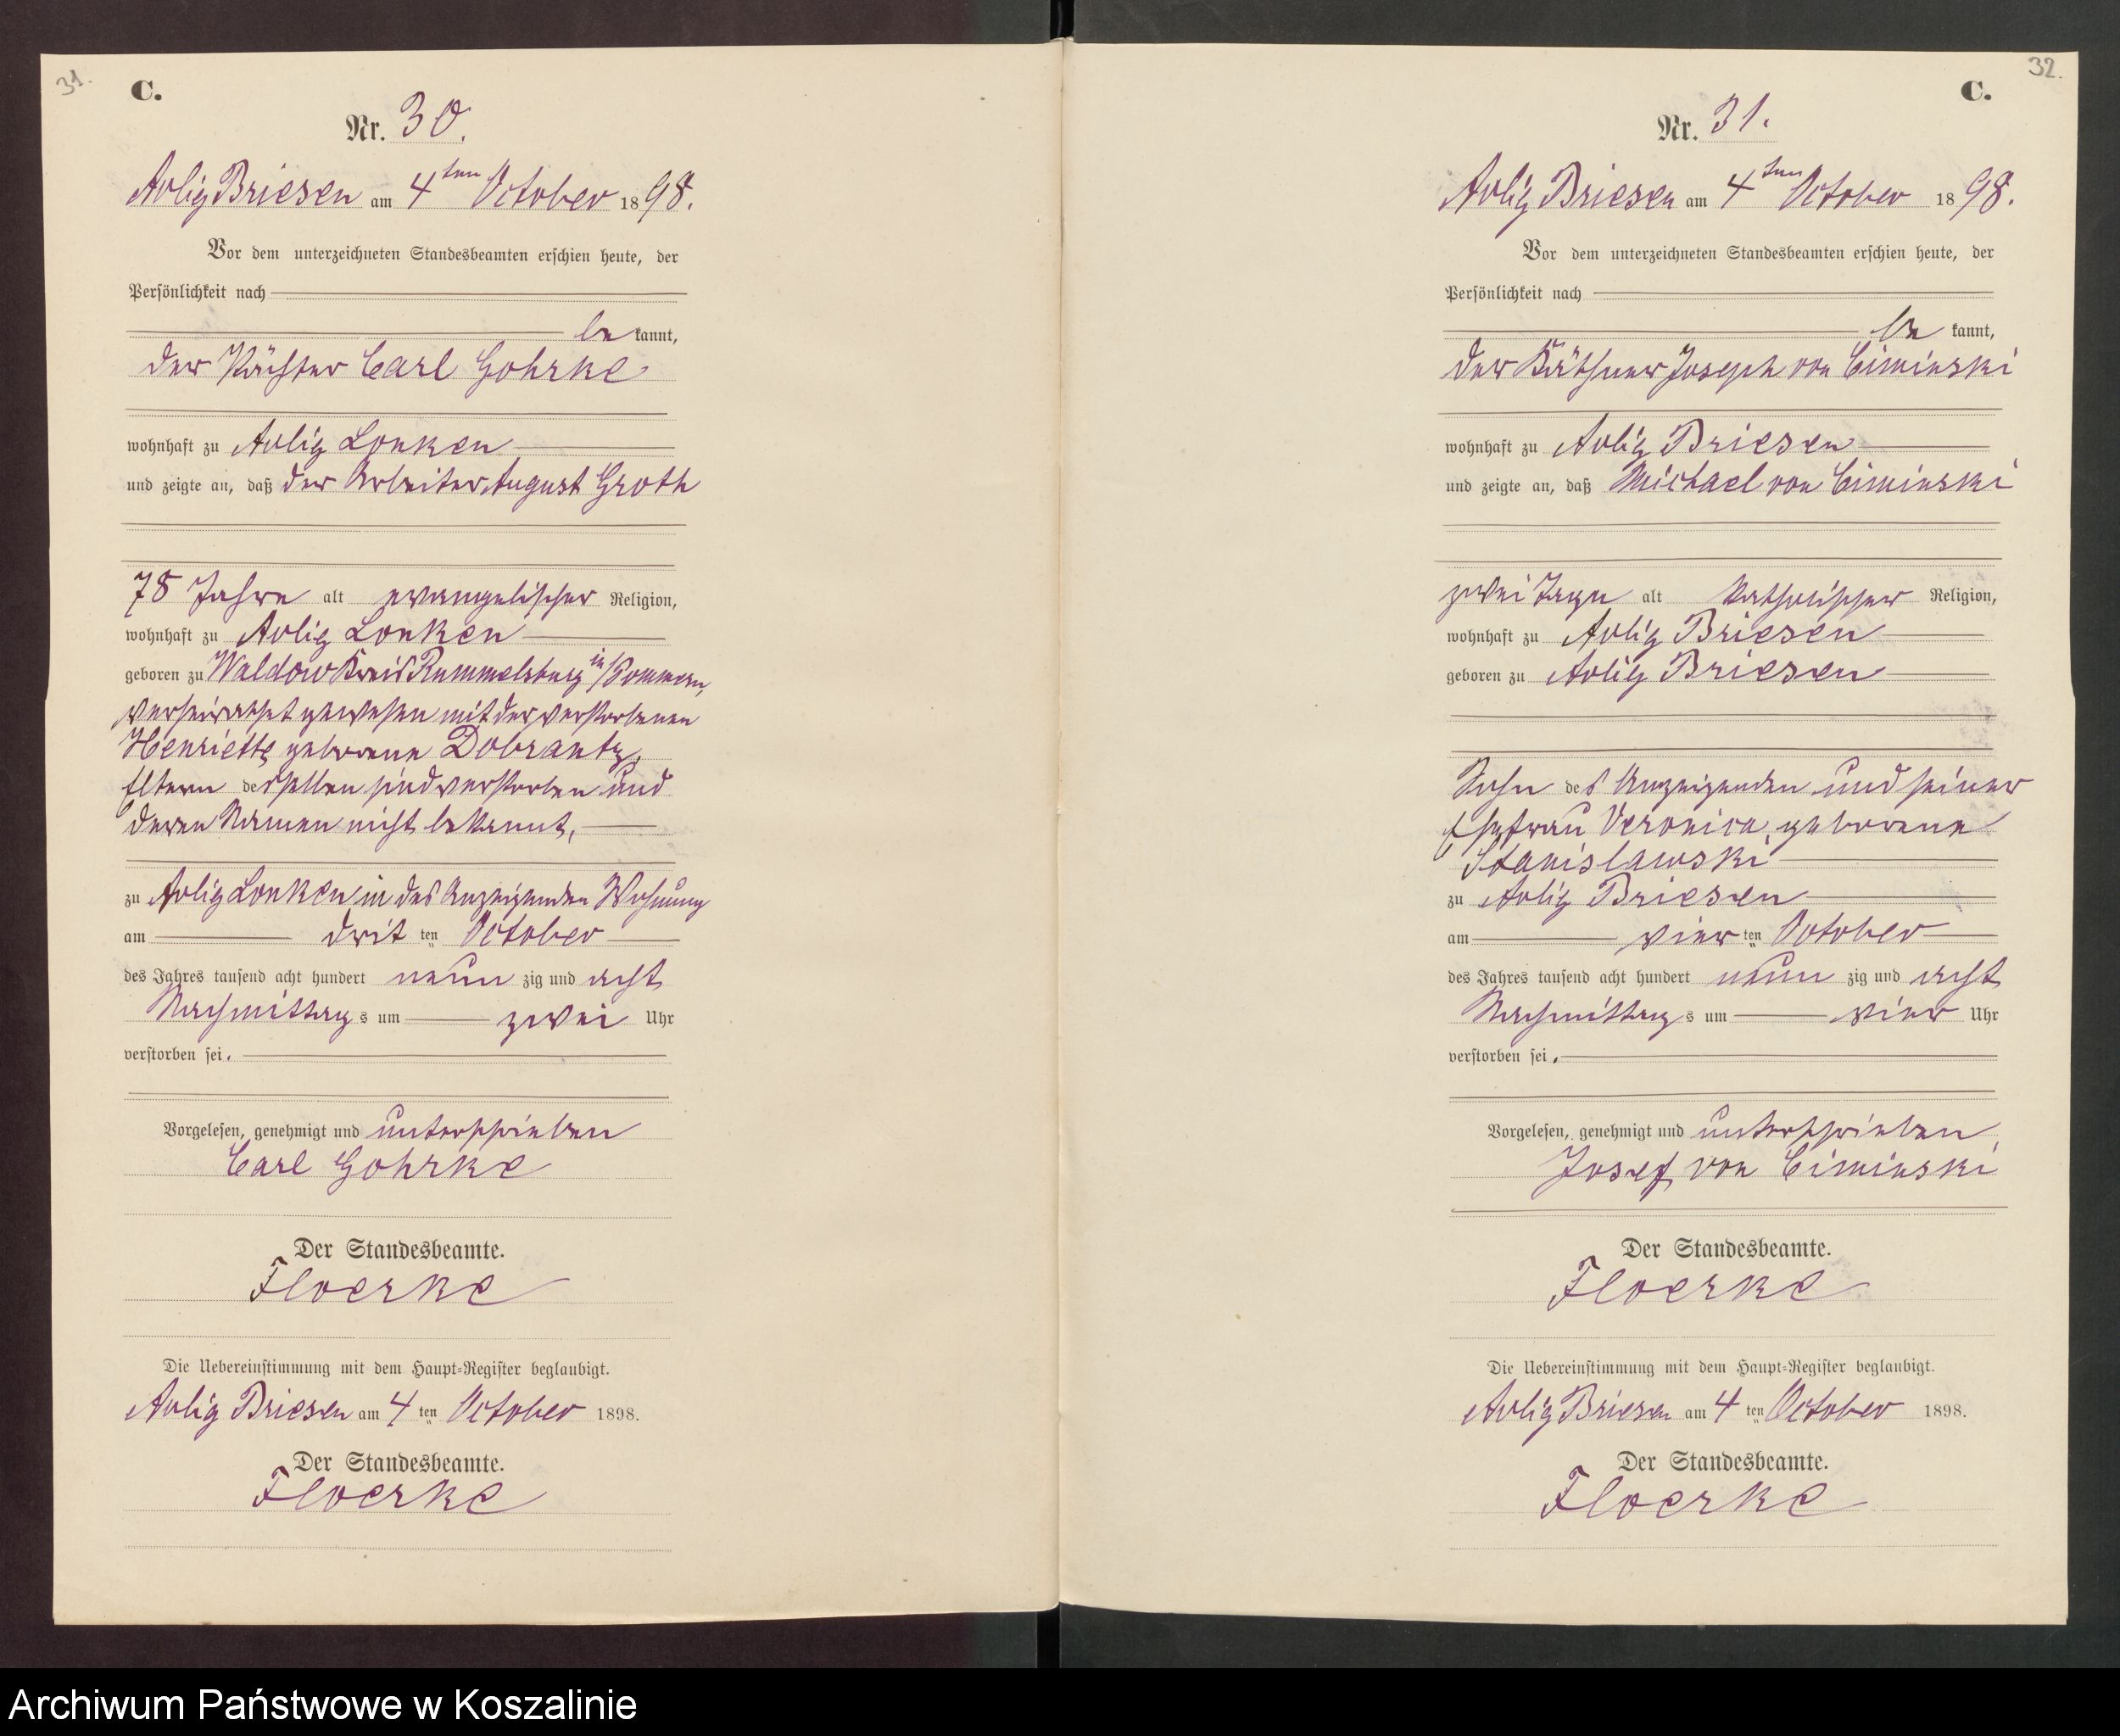 31.
C.
Nr. 30.
Adlig Briesen am 4ten October 1898.
Vor dem unterzeichneten Standesbeamten erschien heute, der
Persönlichkeit nach
bekannt,
der Pächter Carl Gohrke
wohnhaft zu Adlig Lonken
und zeigte an, daß der Arbeiter August Groth
78 Jahre alt evangelischer Religion,
wohnhaft zu Adlig Lonken
geboren zu Waldow Kreis Rummelsburg in/Pommern,
verheirathet gewesen mit der verstorbenen
Henriette geborene Dobrantz,
Eltern desselben sind verstorben und
deren Namen nicht bekannt,
zu Adlig Lonken in des Anzeigenden Wohnung
am dritten October
des Jahres tausend acht hundert neunzig und acht
Nachmittags um zwei Uhr
verstorben sei.
Vorgelesen, genehmigt und unterschrieben
Carl Gohrke
Der Standesbeamte.
Floerke
Die Uebereinstimmung mit dem Haupt-Register beglaubigt.
Adlig Briesen am 4ten October 1898.
Der Standesbeamte.
Floerke
32.
C.
Nr. 31.
Adlig Briesen am 4ten October 1898.
Vor dem unterzeichneten Standesbeamten erschien heute, der
Persönlichkeit nach
bekannt,
der Käthner Joseph von Ciminski
wohnhaft zu Adlig Briesen
und zeigte an, daß Michael von Ciminski
zwei Tage alt katholischer Religion,
wohnhaft zu Adlig Briesen
geboren zu Adlig Briesen
Sohn des Anzeigenden und seiner
Ehefrau Veronica, geborene
Stanislawski
zu Adlig Briesen
am vierten October
des Jahres tausend acht hundert neunzig und acht
Nachmittags um vier Uhr
verstorben sei.
Vorgelesen, genehmigt und unterschrieben
Josef von Ciminski
Der Standesbeamte.
Floerke
Die Uebereinstimmung mit dem Haupt-Register beglaubigt.
Adlig Briesen am 4ten October 1898.
Der Standesbeamte.
Floerke
Archiwum Państwowe w Koszalinie